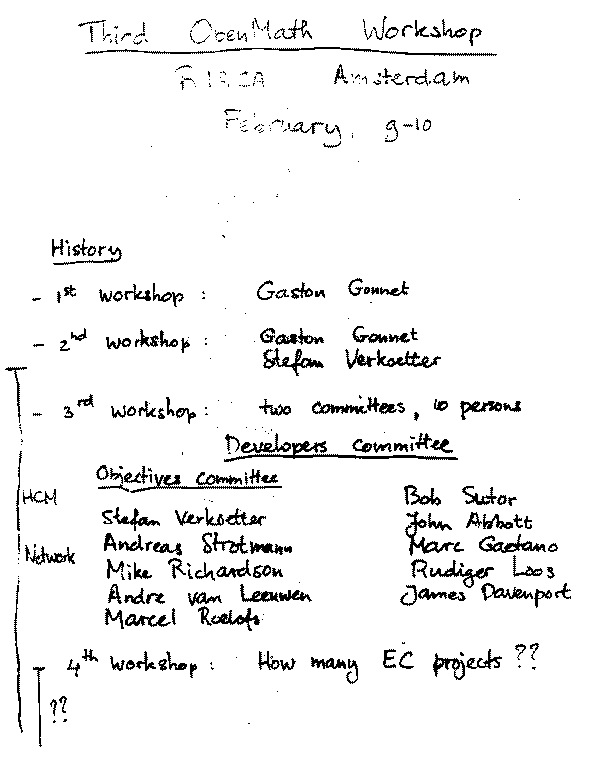 Third OpenMath Workshop
RIACA Amsterdam
February, 9-10
History
- 1st workshop : Gaston Gonnet
- 2nd workshop : Gaston Gonnet
Stefan Verkoetter
- 3rd workshop : two committees, 10 persons
Developers committee
Objectives committee
HCM
Network
Stefan Verkoetter
Andreas Strotmann
Mike Richardson
Andre van Leeuwen
Marcel Roelofs
Bob Sutor
John Abbott
Marc Gaetano
Rudiger Loos
James Davenport
4th workshop : How many EC projects ??
??